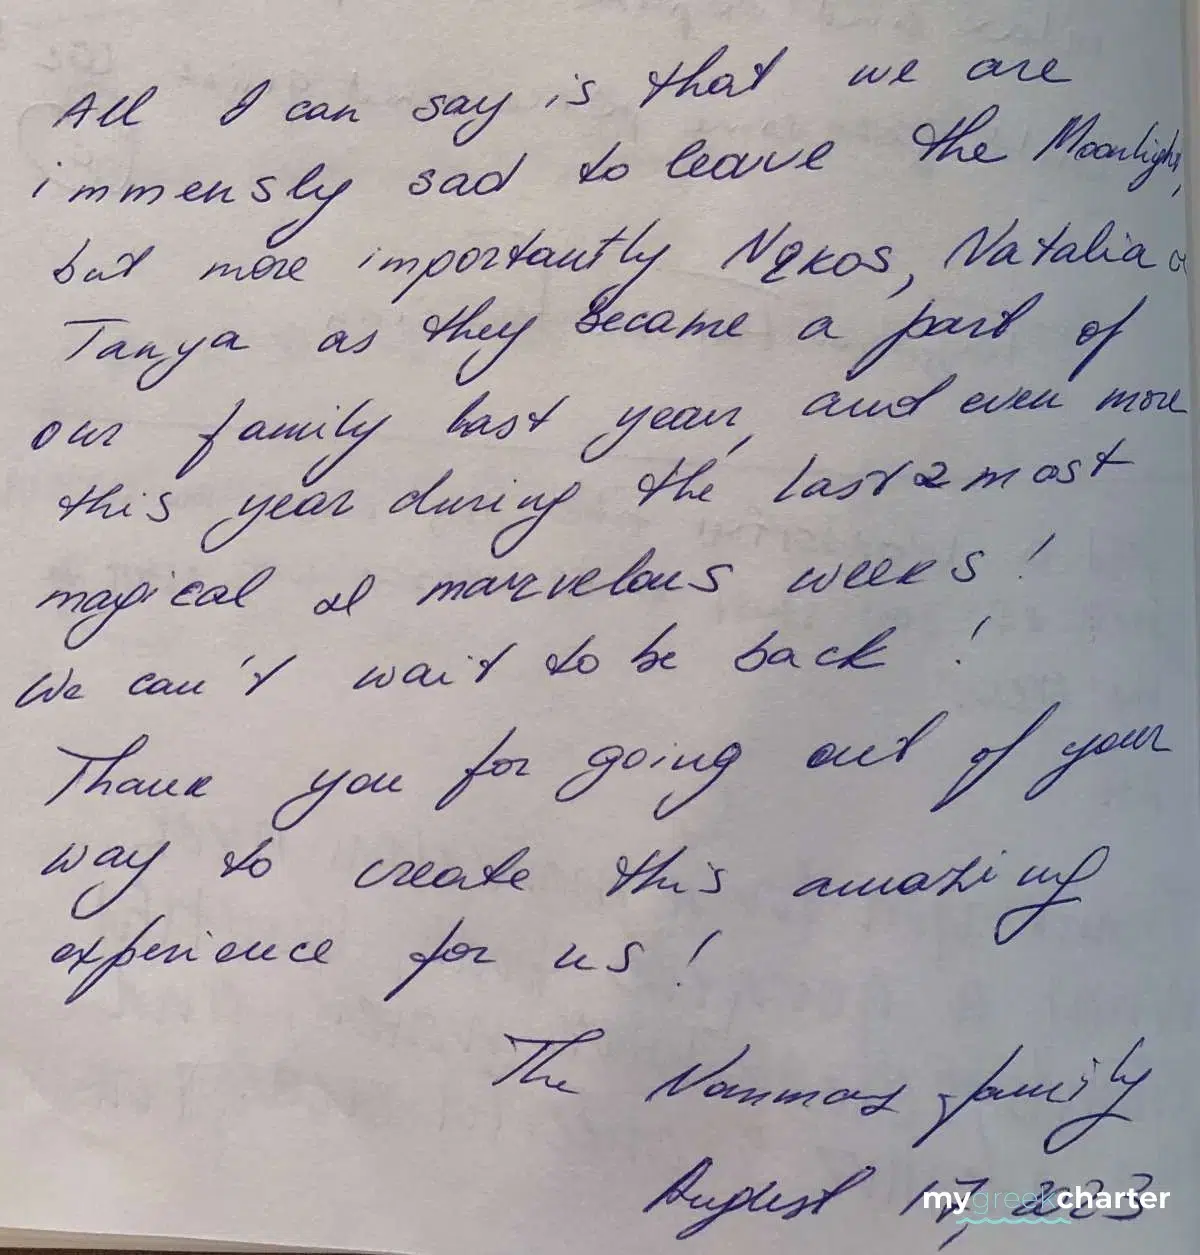 All I can say is that we are
immensly sad to leave the Moonlight,
but more importantly Nikos, Natalia &
Tanya as they became a part of
our family last year, and even more
this year during the last 2 most
magical & marvelous weeks!
We can't wait to be back!
Thank you for going out of your
way to create this amazing
experience for us!
The family
August 17, 2023
mygreekcharter